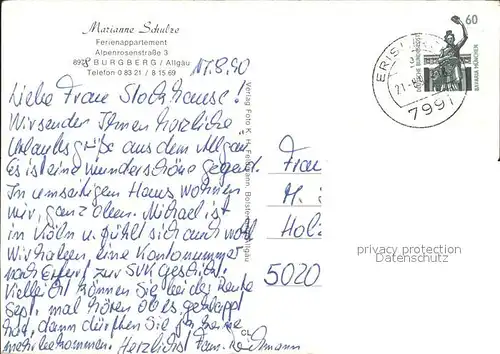 Marianne Schulze
Ferienappartement
Alpenrosenstraße 3
8978 BURGBERG / Allgäu
Telefon 0 83 21 / 8 15 69
17.8.90
Liebe Frau Stockhause!
Wir senden Ihnen herzliche
Urlaubsgrüße aus dem Allgäu.
Es ist eine wunderschöne Gegend.
In umseitigen Haus wohnen
wir, ganz oben. Michael ist
in Köln u. fühlt sich auch wohl
Wir haben eine Kontonummer
nach Erfurt zur SVK geschickt.
Vielleicht können Sie bei der Rente
Sept. mal hören ob es geklappt
hat, dann dürften Sie ja keine
mehr bekommen. Herzlichst Fam.
Verlag Foto K. H. Feldmann, Bolsterlang/Allgäu
Frau
M.
Hol
5020
60
DEUTSCHE BUNDESPOST
BAVARIA MÜNCHEN
ERIS
21.
7991
privacy protection
Datenschutz